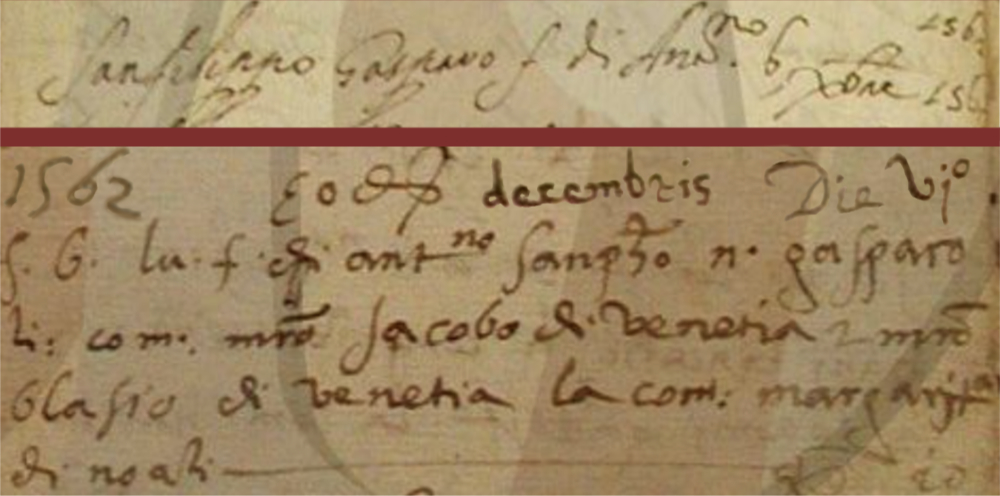 Sanfilippo Gasparo f di Ant.no 6 xbre 156
1562 eodē decembris Die vjo.
f. b. lu. f. di ant.no sanpho n. gasparo
li: com: mro Jacobo di venetia 2 mro
blasio di venetia la com: margarita
di noali